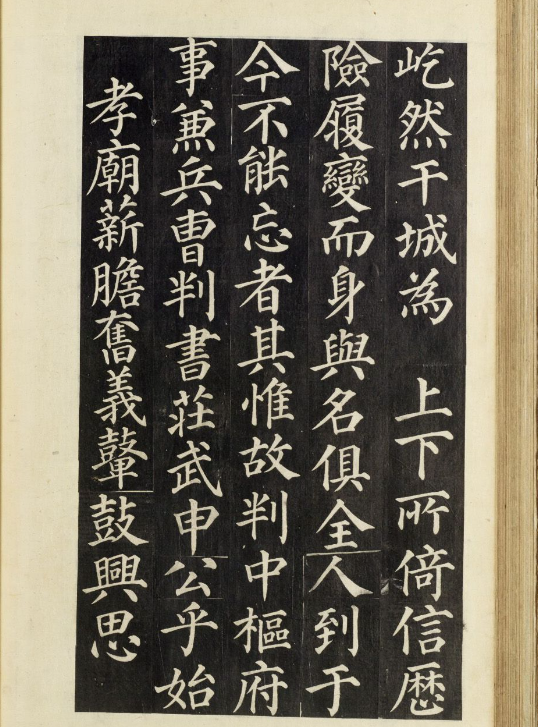 屹然干城為　上下所倚信歷
險履變而身與名俱全人到于
今不能忘者其惟故判中樞府
事兼兵曹判書莊武申公乎始
孝廟薪膽奮義鼙鼓興思